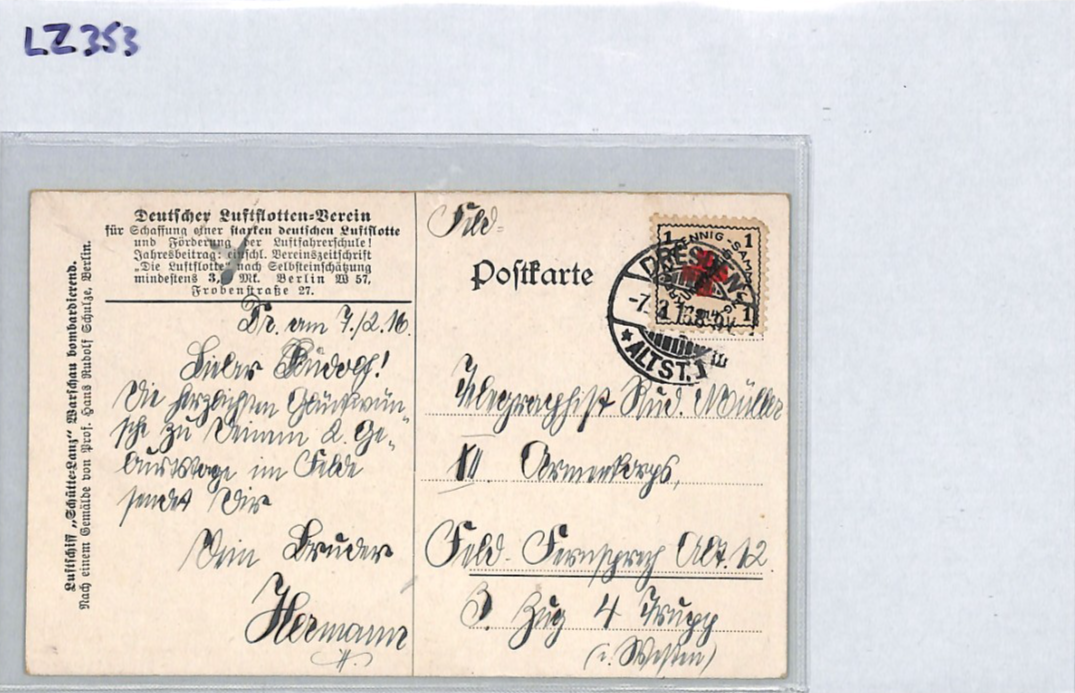 LZ353
Deutscher Luftflotten=Verein
für Schaffung einer starken deutschen Luftflotte
und Förderung der Luftfahrerschule!
Jahresbeitrag: einschl. Vereinszeitschrift
„Die Luftflotte" nach Selbsteinschätzung
mindestens 3,- Mk. Berlin W 57,
Frobenstraße 27.
Luftschiff „Schütte=Lanz" Warschau bombardierend.
Nach einem Gemälde von Prof. Hans Rudolf Schulze, Berlin.
Dr. am 7./2.16.
Lieber Rudolf!
Die herzlichsten Glückwün-
sche zu Deinem 2. Ge-
burtstage im Felde
sendet Dir
Dein Bruder
Hermann
Feld=
Postkarte
1 PFENNIG 1
1 1
DRESDEN
-7. 2. 8-9
* ALTST. 1
Telegraphist Rud. Müller
XII Armeekorps,
Feld-Fernsprech Abt. 12
3. Zug 4 Trupp
(i. Westen)